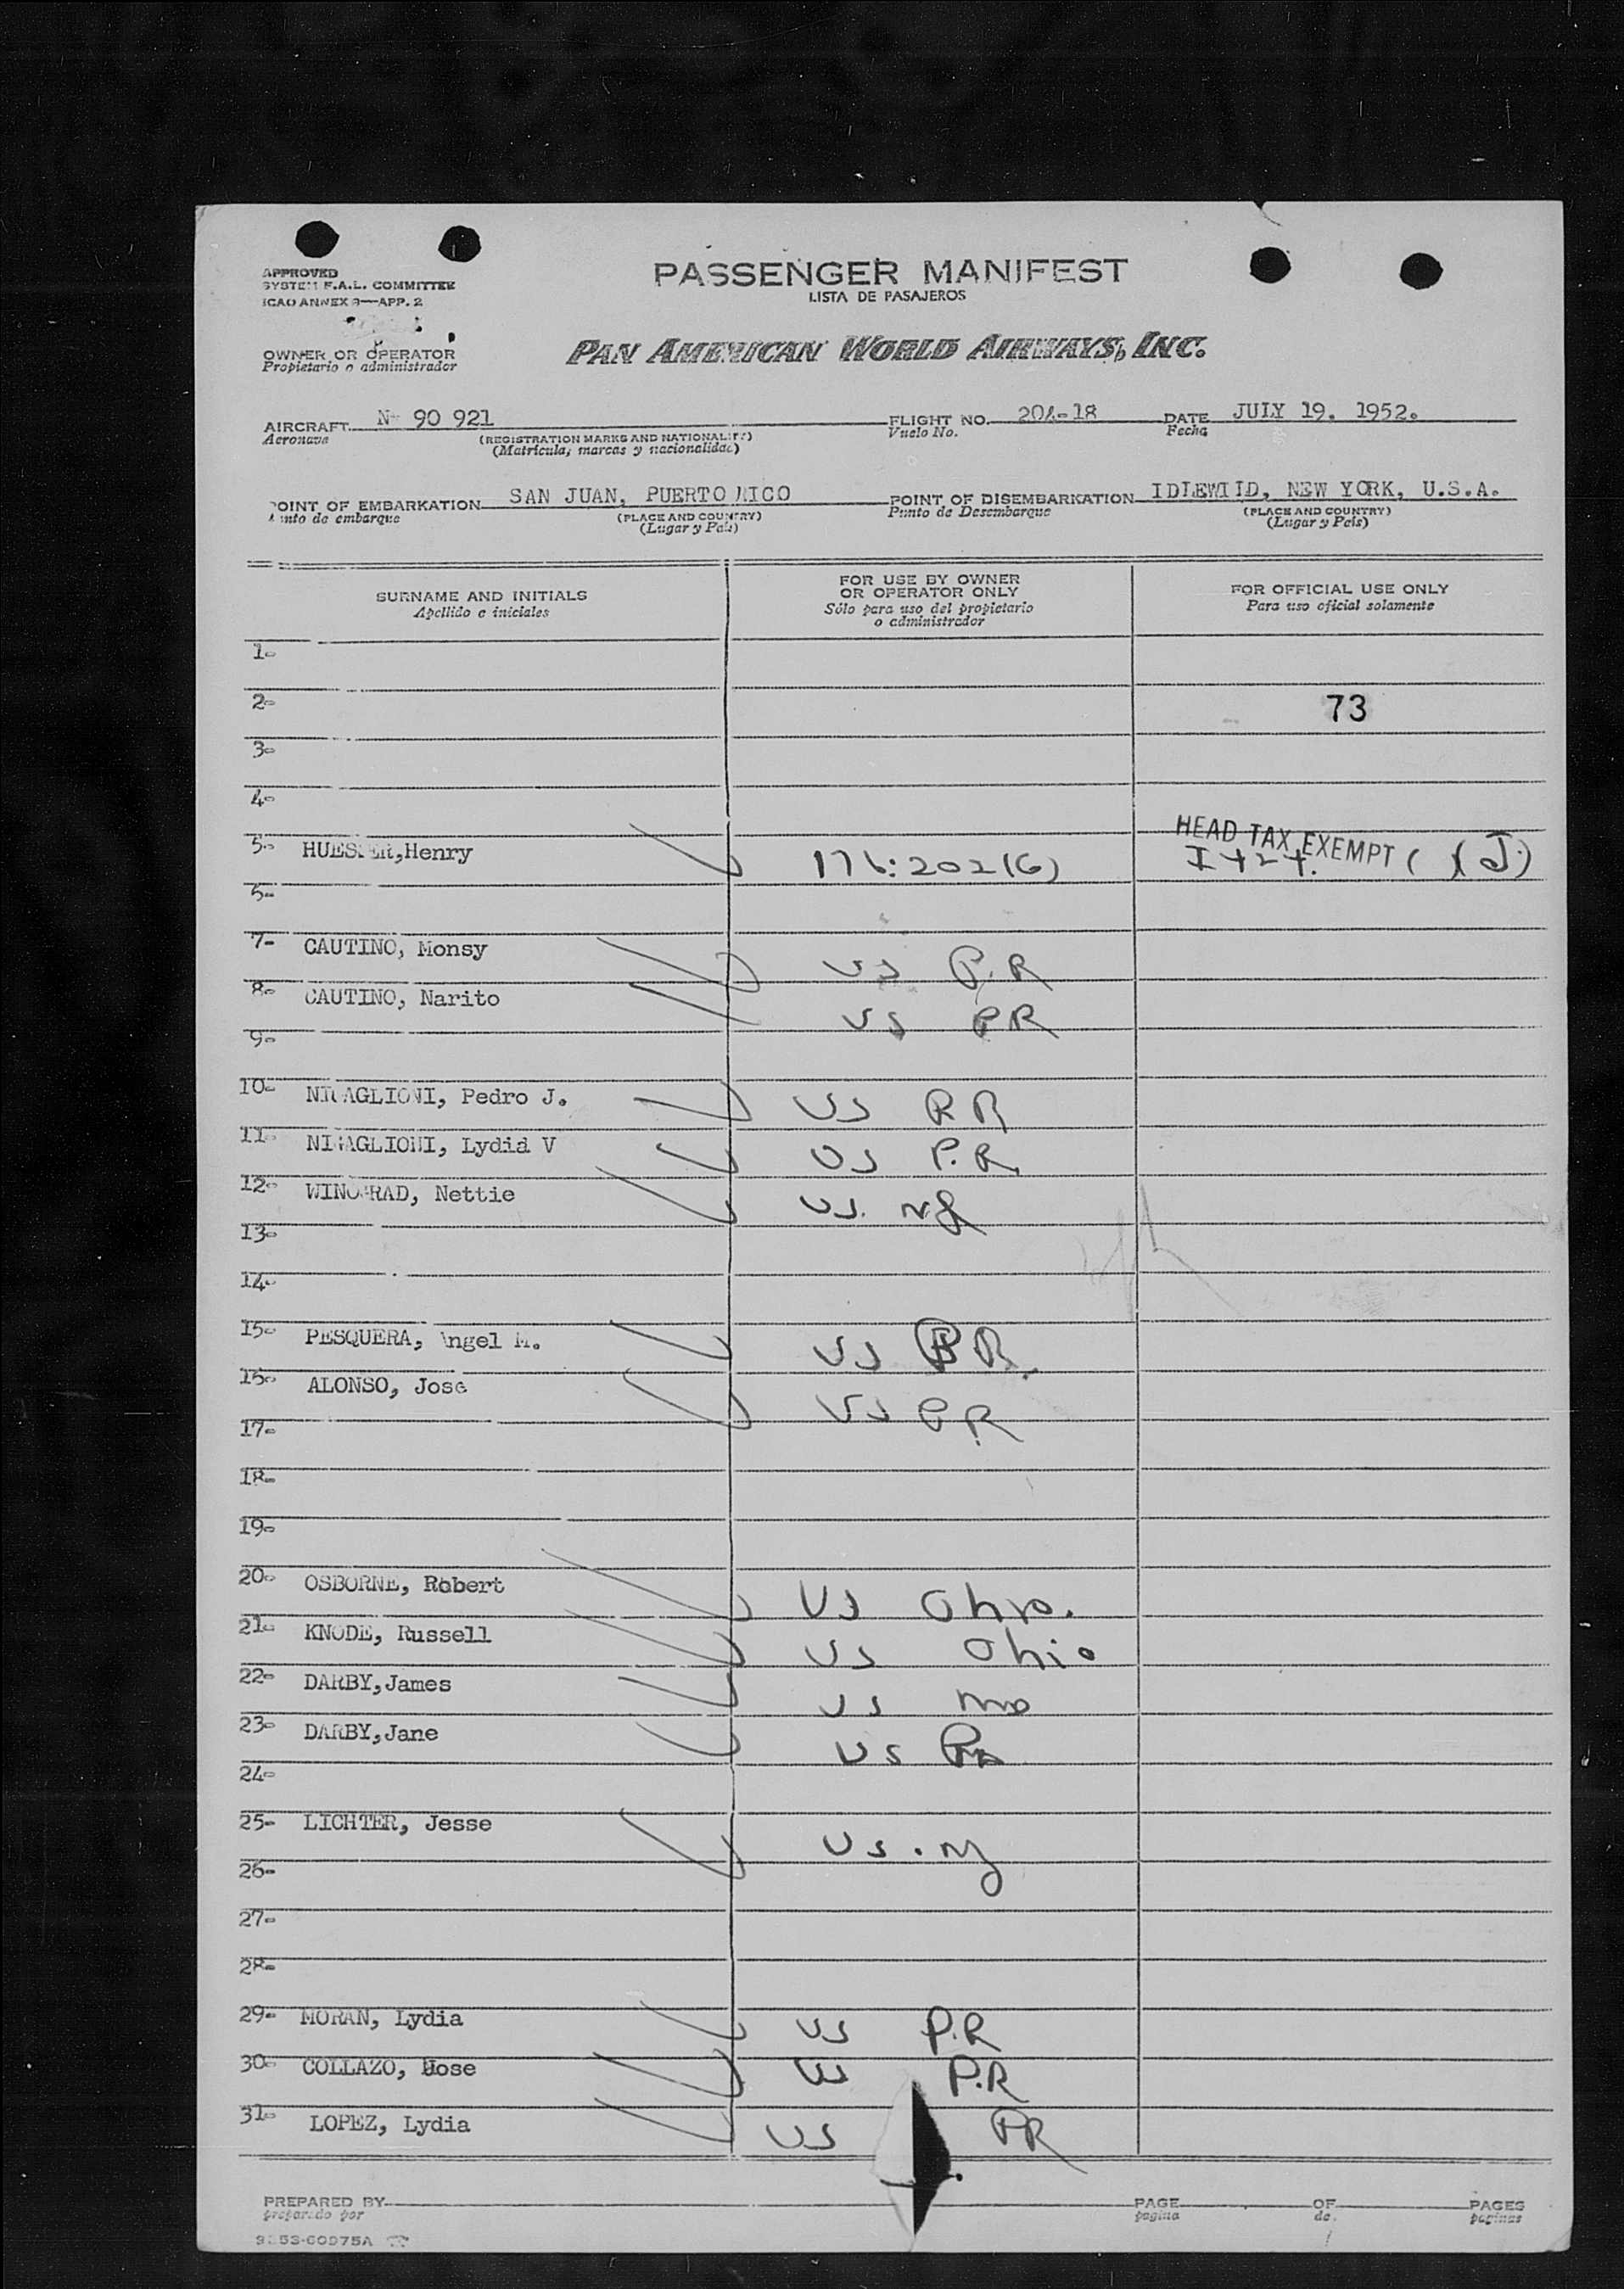 APPROVED
SYSTEM F.A.L. COMMITTEE
ICAO ANNEX 9—APP. 2
PASSENGER MANIFEST
LISTA DE PASAJEROS
OWNER OR OPERATOR
Propietario o administrador
PAN AMERICAN WORLD AIRWAYS, INC.
AIRCRAFT N- 90 921 FLIGHT NO. 204-18 DATE JULY 19. 1952.
Aeronave (REGISTRATION MARKS AND NATIONALITY) Vuelo No. Fecha
(Matrícula, marcas y nacionalidad)
POINT OF EMBARKATION SAN JUAN, PUERTO RICO POINT OF DISEMBARKATION IDLEWILD, NEW YORK, U.S.A.
Punto de embarque (PLACE AND COUNTRY) Punto de Desembarque (PLACE AND COUNTRY)
(Lugar y País) (Lugar y País)
SURNAME AND INITIALS FOR USE BY OWNER OR OPERATOR ONLY FOR OFFICIAL USE ONLY
Apellido e iniciales Sólo para uso del propietario o administrador Para uso oficial solamente
1-
2- 73
3-
4-
5- Henry 176:202(G) HEAD TAX EXEMPT ( )(J)
6-
7- CAUTINO, Monsy US P.R
8- CAUTINO, Narito US PR
9-
10- Pedro J. US PR
11- Lydia V US P.R.
12- WINOGRAD, Nettie US. NY
13-
14-
15- PESQUERA, Angel M. US PR.
16- ALONSO, Jose US PR
17-
18-
19-
20- OSBORNE, Robert US Ohio.
21- KNODE, Russell US Ohio
22- DARBY,James US Mo
23- DARBY,Jane US Pa
24-
25- LICHTER, Jesse US. NY
26-
27-
28-
29- MORAN, Lydia US P.R
30- COLLAZO, US P.R
31- LOPEZ, Lydia US PR
PREPARED BY PAGE OF PAGES
preparado por pagina de paginas